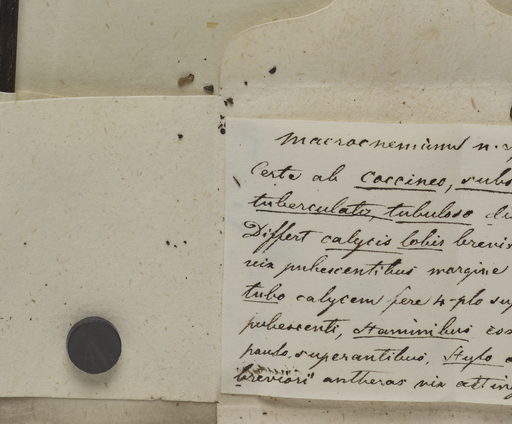 Macrocnemum n. 
Certe ab coccineo, subs
tuberculato, tubuloso di
Differt calycis lobis brevi
vix pubescentibus margine
tubo calycem fere 4-plo sup
pubescenti, staminibus
paulo superantibus, stylo
breviori antheras vix atting